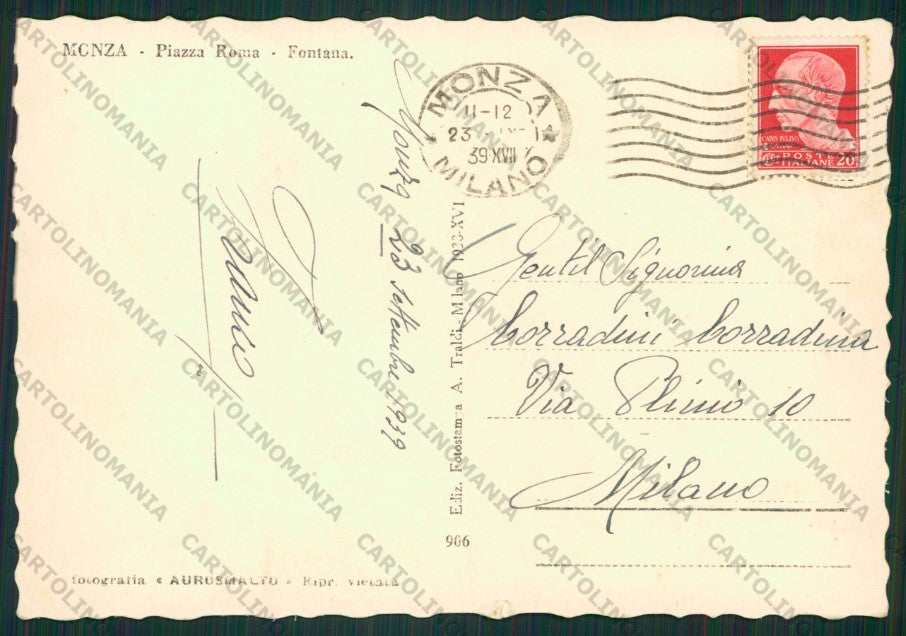 MONZA - Piazza Roma - Fontana.
MONZA
11-12
23
39 XVII
MILANO
POSTE
ITALIANE 20
Monza 23 settembre 1939
Ediz. Fotostampa A. Traldi - Milano
Gentil Signorina
Corradini Corradina
Via Plinio 10
Milano
906
fotografia « AUROSMALTO » Ripr. vietata
CARTOLINOMANIA